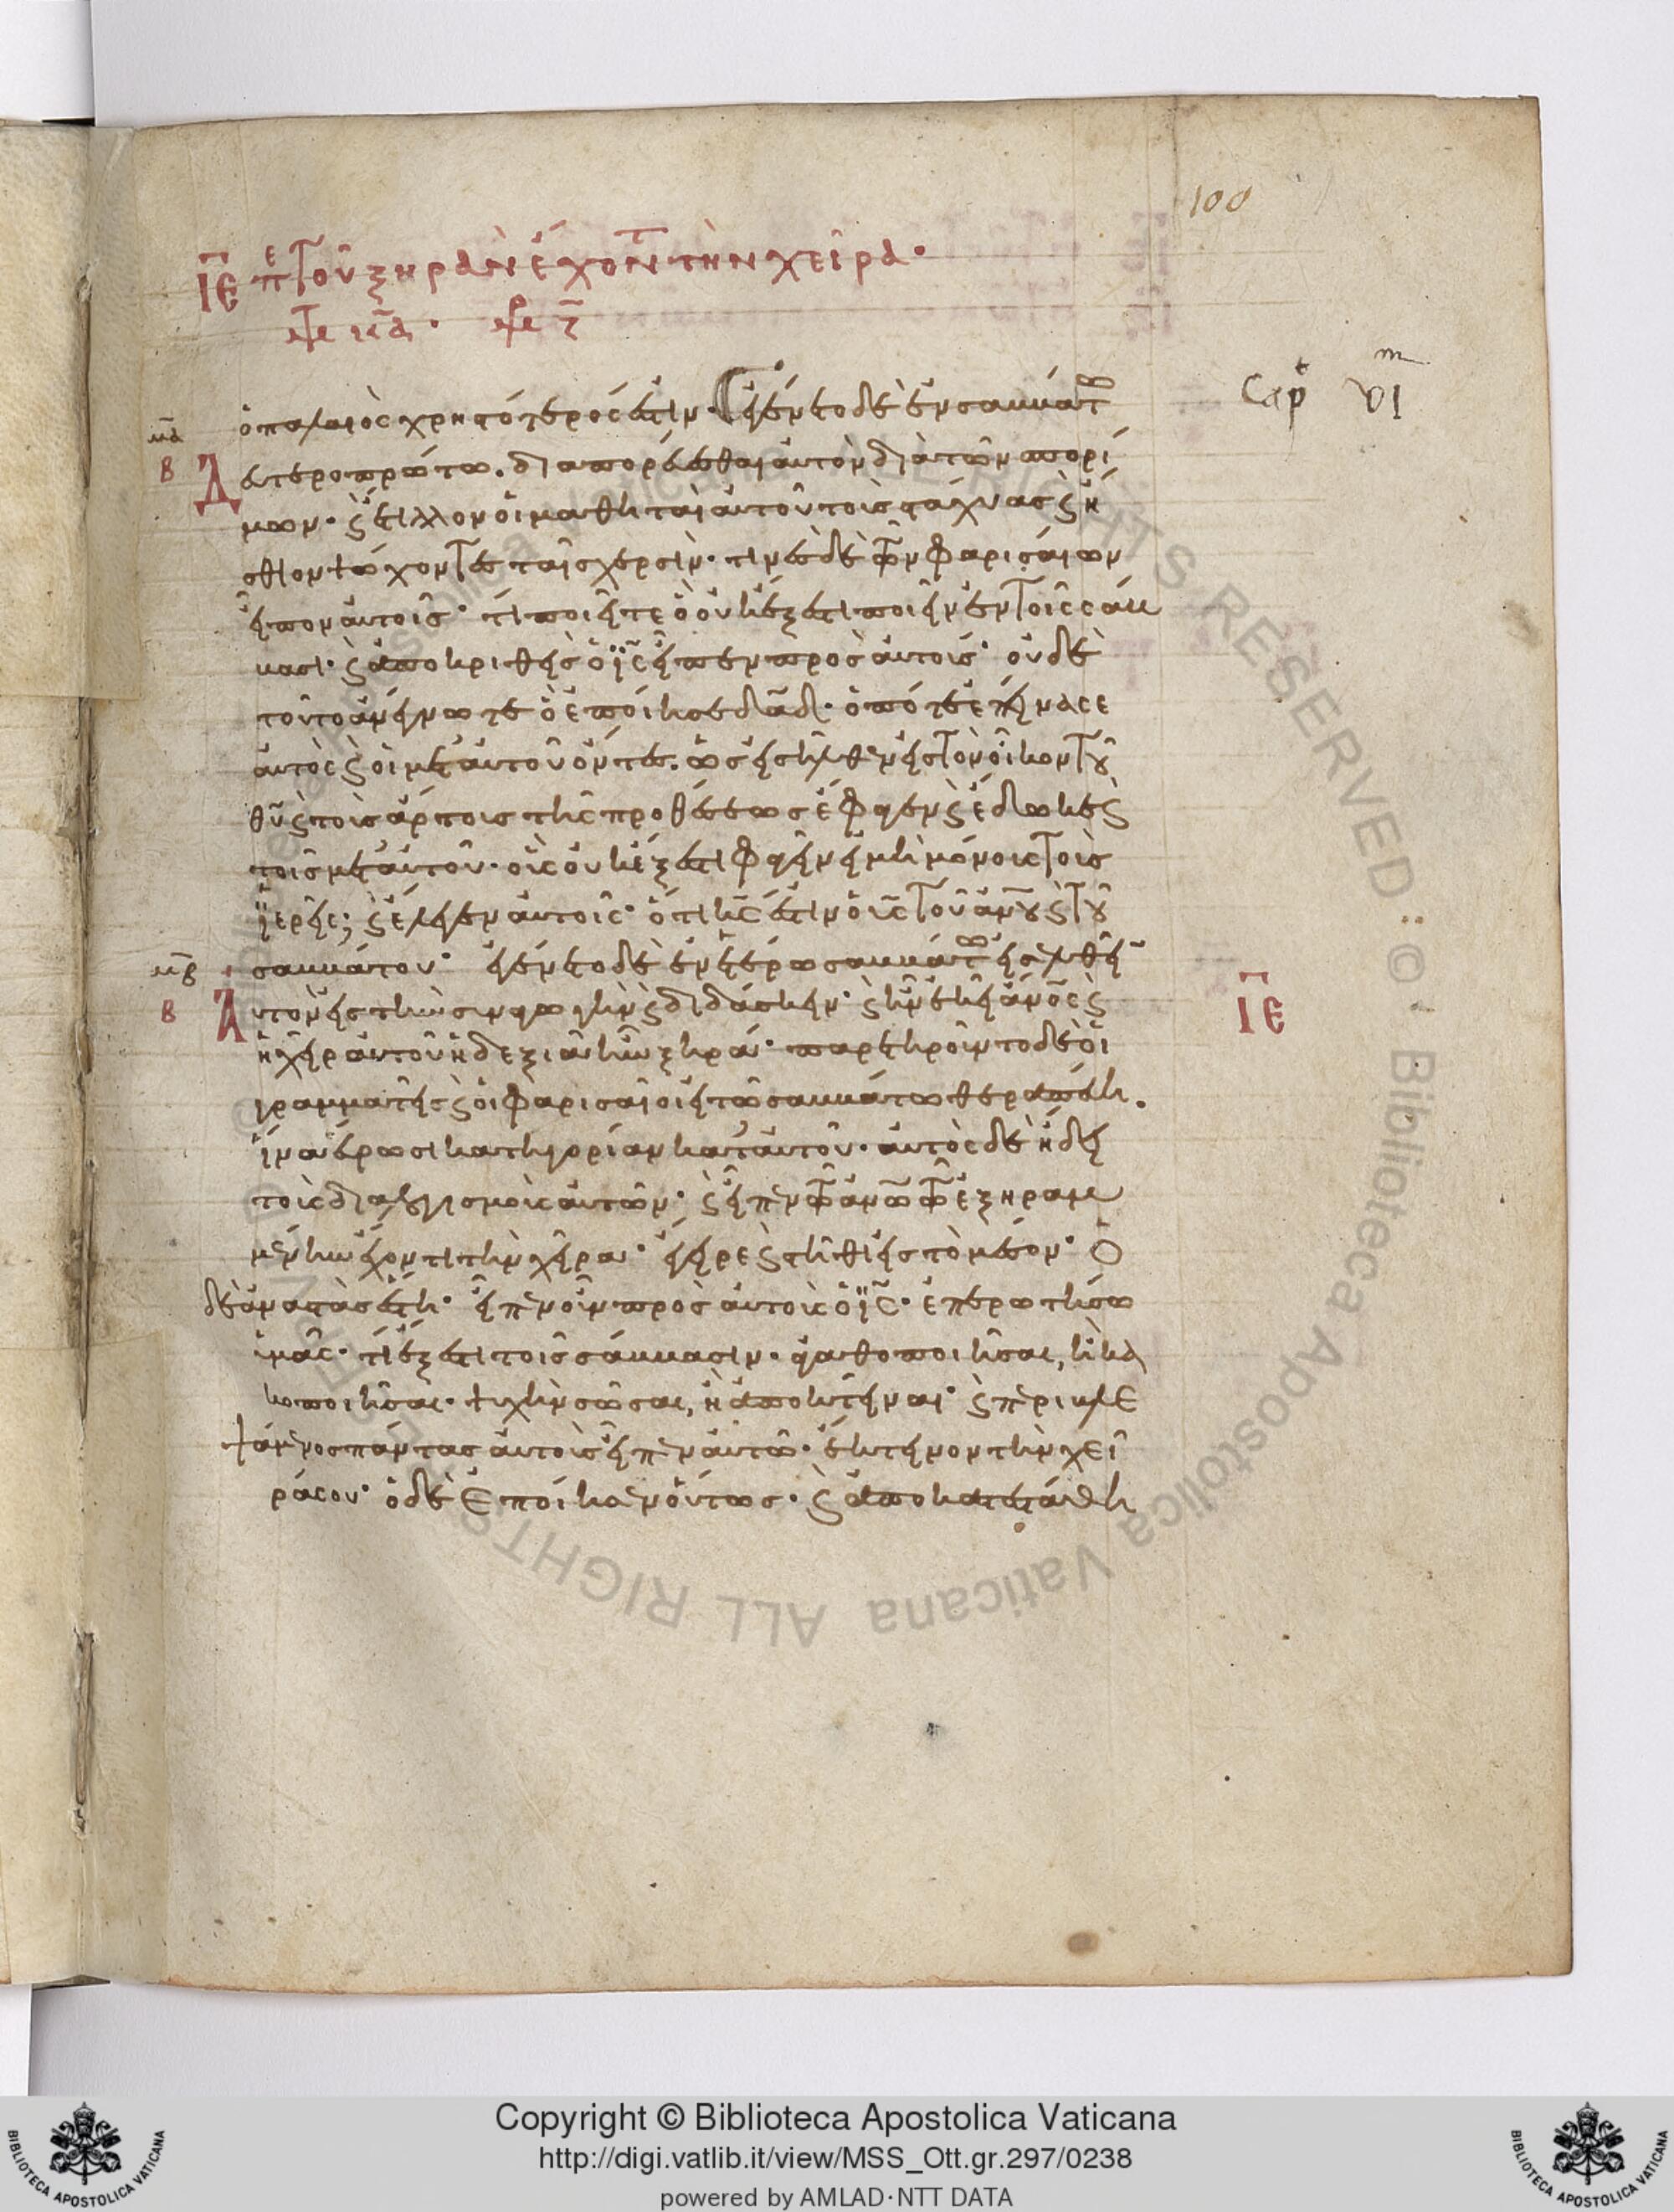 100
ΙΕ περὶ τοῦ ξηρὰν ἔχοντ τὴν χεῖρα·
Cap VI
ὁ παλαιὸς χρηστότερος ἐστιν· ἐγένετο δὲ ἐν σαββάτω
μα
β
Δευτεροπρώτω. διαπορέυεσθαι ἀυτὸν διὰ τῶν σπορί
μων· ϗ ἔτιλλον ὁι μαθηταὶ ἀυτοῦ τοὺς στάχυας ϗ ἤ
σθιον ψώχοντες ταῖς χερσίν· τινὲς δὲ τῶν φαρισάιων
εἶπον ἀυτοῖς· τί ποιεῖτε ὃ ὀυκ ἔξεστι ποιεῖν ἐν τοῖς σάβ
βασι· ϗ ἀποκριθεὶς ὁ ϊς εἶπεν πρὸς ἀυτοὺς· ὀυδὲ
τοῦτο ἀνέγνωτε ὃ ἐποίησε δαδ· ὁπότε ἐπείνασε
ἀυτὸς ϗ ὁι μετ ἀυτοῦ ὄντες. ὡς εἰσῆλθεν εἰς τὸν οἶκον τοῦ
θυ ϗ τοὺς ἄρτους τῆς προθέσεως ἔφαγεν ϗ ἔδωκε ϗ
τοῖς μετ ἀυτοῦ· οὓς ὀυκ ἔξεστι φαγεῖν εἰ μὴ μόνους τοὺς
ϊερεῖς; ϗ ἔλεγεν ἀυτοῖς· ὅτι κς ἐστιν ὁ υς τοῦ ανου ϗ τοῦ
σαββάτου· ἐγένετο δὲ ἐν ἑτέρω σαββάτω εἰσελθεῖν
μβ
β
Αυτὸν εἰς τὴν συναγωγὴν ϗ διδάσκειν· ϗ ἦν ἐκεῖ ανος ϗ
ἡ χεὶρ ἀυτοῦ ἡ δεξιὰ ἦν ξηρά· παρετηροῦντο δὲ ὁι
ΙΕ
γραμματεῖς ϗ ὁι φαρισαῖοι εἰ τῶ σαββάτω θεραπέυει.
ἵνα ἕυρωσι κατηγορίαν κατ ἀυτοῦ· ἀυτὸς δὲ ἤδει
τοὺς διαλογισμοὺς ἀυτῶν· ϗ εἶπεν τῶ ανω τῶ ἐξηραμ
μένην ἔχοντι τὴν χεῖρα· ἔγειρε ϗ στῆθι εἰς τὸ μέσον· ὁ
δὲ ἀναστὰς ἔστη· εἶπεν οὖν πρὸς ἀυτοὺς ὁ ϊς· ἐπερωτήσω
ὑμᾶς· τί ἔξεστι τοῖς σάββασιν· ἀγαθοποιῆσαι, ἢ κα
κοποιῆσαι· ψυχὴν σῶσαι, ἢ ἀποκτεῖναι· ϗ περιβλε
ψάμενος πάντας ἀυτοὺς εἶπεν ἀυτῶ· ἔκτεινον τὴν χεῖ
ρά σου· ὁ δὲ ἐποίησεν ὄυτως· ϗ ἀποκατεστάθη
Copyright © Biblioteca Apostolica Vaticana
http://digi.vatlib.it/view/MSS_Ott.gr.297/0238
powered by AMLAD·NTT DATA
BIBLIOTECA APOSTOLICA VATICANA
BIBLIOTECA APOSTOLICA VATICANA